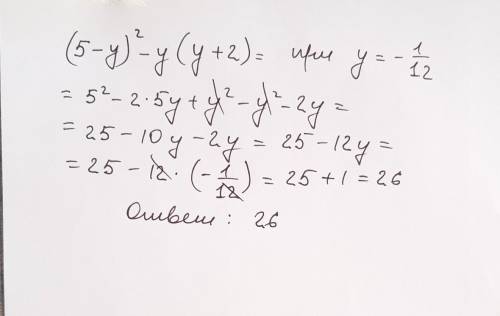 (5-y)² - y (y+2) = при y = - 1/12
= 5² - 2·5y + y² - y² - 2y =
= 25 - 10y - 2y = 25 - 12y =
= 25 - 12 · (- 1/12) = 25 + 1 = 26
Ответ : 26